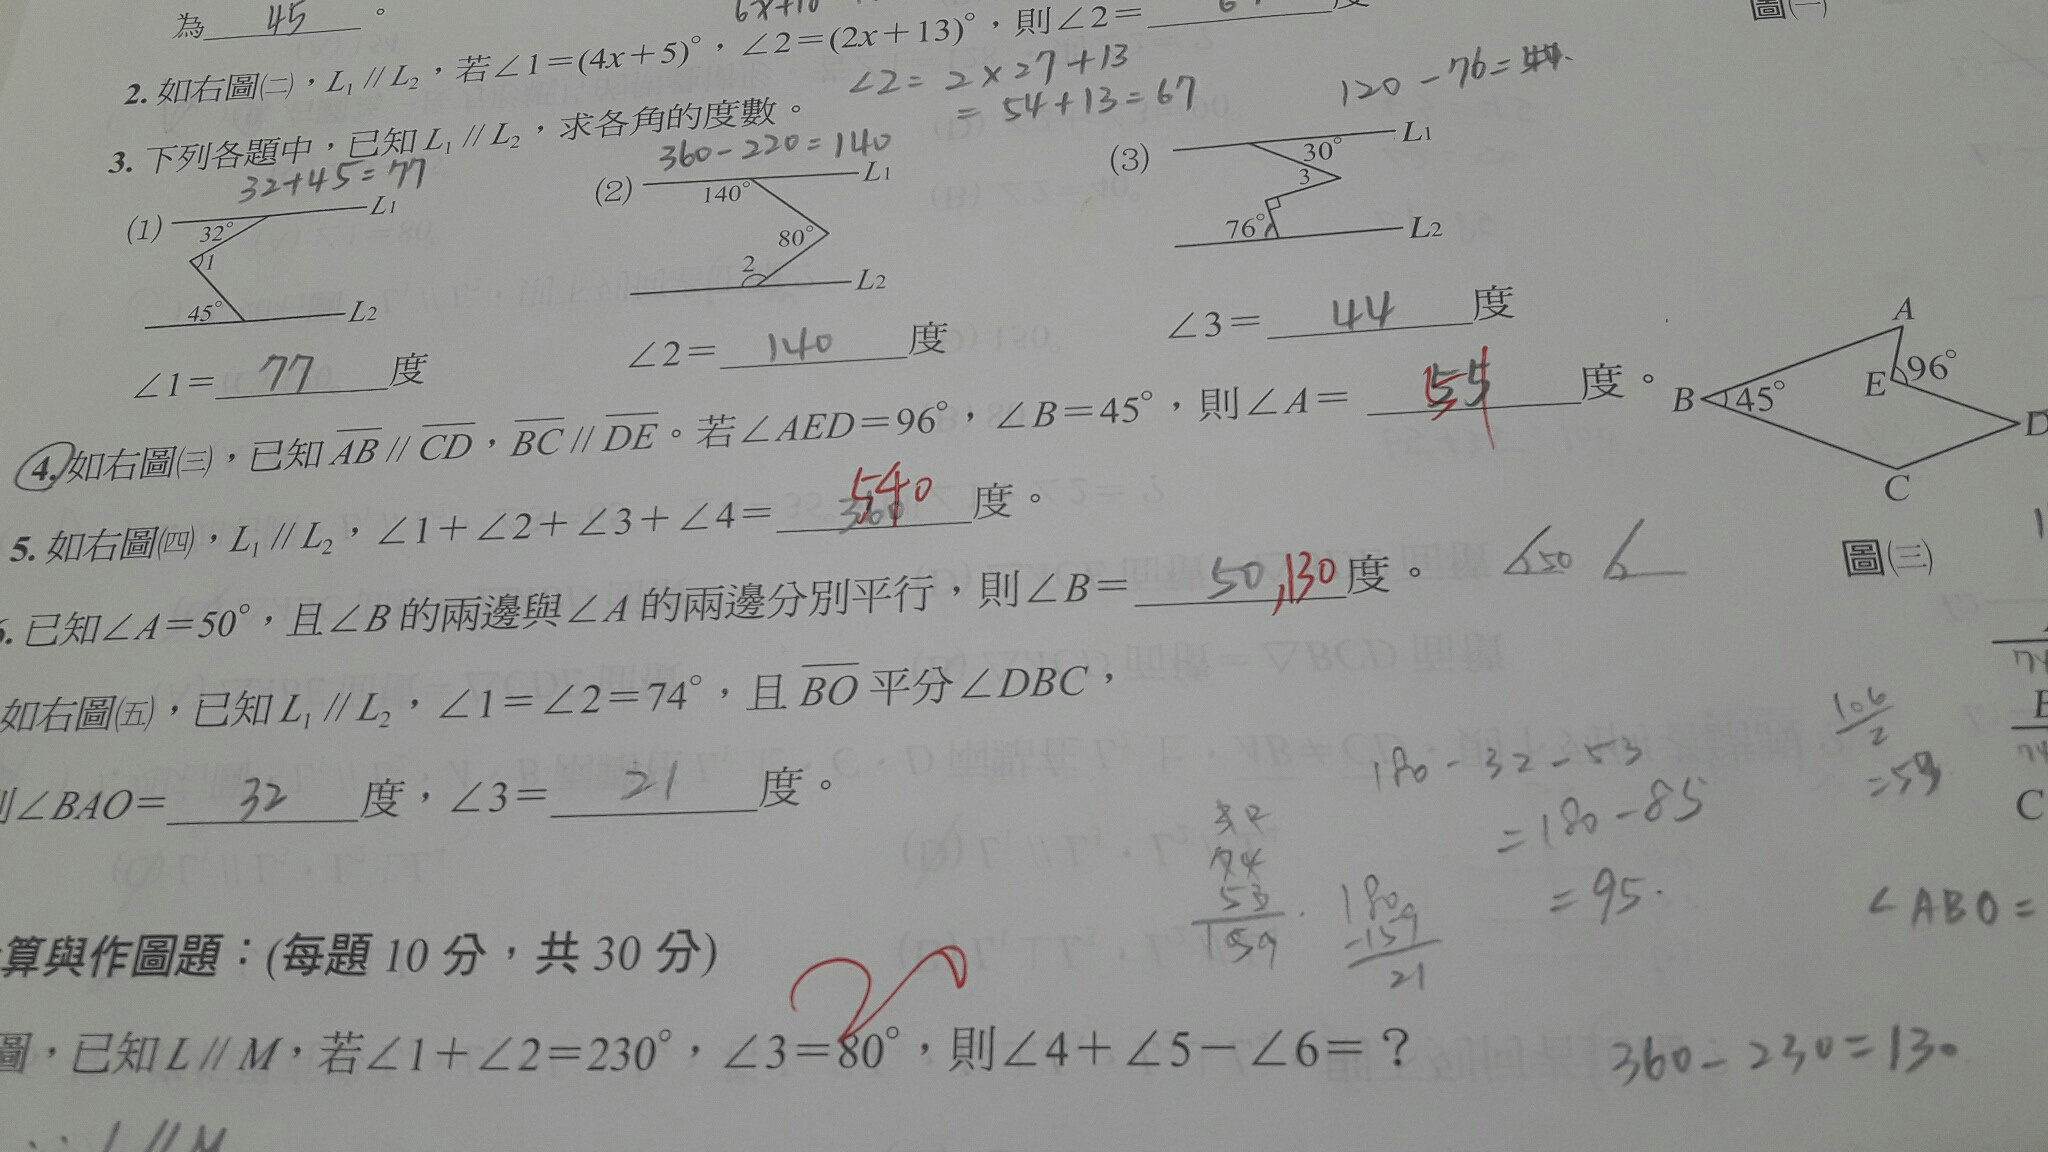 為 45 。
2. 如右圖㈡，L₁ // L₂，若∠1＝(4x＋5)°，∠2＝(2x＋13)°，則∠2＝
∠2 = 2×27+13
= 54+13=67
3. 下列各題中，已知 L₁ // L₂，求各角的度數。
圖㈠
(1)
32+45=77
L1
32°
1
45°
L2
∠1＝ 77 度
(2)
360-220=140
L1
140°
80°
2
L2
∠2＝ 140 度
(3)
120-76=44
L1
30°
3
76°
L2
∠3＝ 44 度
4. 如右圖㈢，已知 AB // CD，BC // DE。若∠AED＝96°，∠B＝45°，則∠A＝ 51 度。
A
B 45°
E 96°
D
C
圖㈢
5. 如右圖㈣，L₁ // L₂，∠1＋∠2＋∠3＋∠4＝ 360 540 度。
6. 已知∠A＝50°，且∠B 的兩邊與∠A 的兩邊分別平行，則∠B＝ 50,130 度。
50
如右圖㈤，已知 L₁ // L₂，∠1＝∠2＝74°，且 BO 平分∠DBC，
則∠BAO＝ 32 度，∠3＝ 21 度。
180-32-53
=180-85
=95
106/2
=53
74
53
159
180
-159
21
∠ABO=
74
74
C
算與作圖題：(每題 10 分，共 30 分)
圖，已知 L // M，若∠1＋∠2＝230°，∠3＝80°，則∠4＋∠5－∠6＝？
360-230=130
∵ L // M